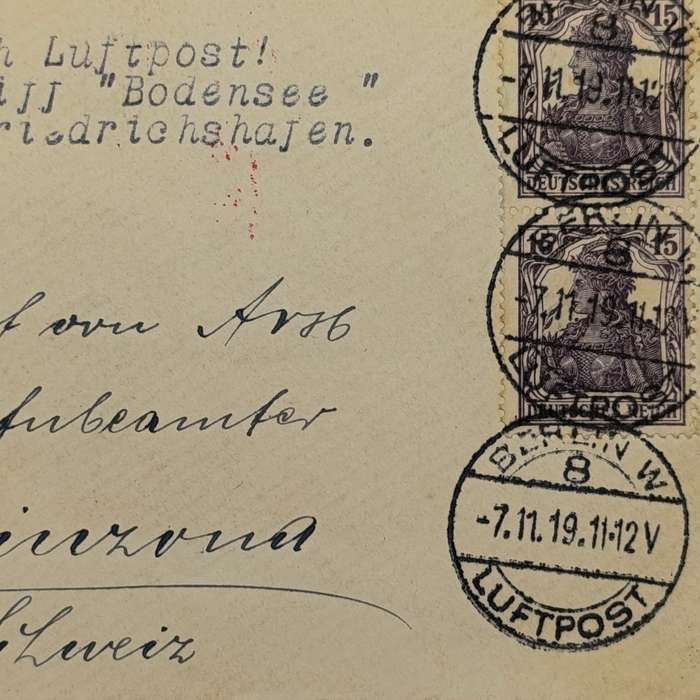 h Luftpost!
iff "Bodensee "
riedrichshafen.
f von Arx
fnbeamter
inzona
Schweiz
15 15
BERLIN W
8
-7.11.19.11-12V
LUFTPOST
DEUTSCHES REICH
15 15
BERLIN W
8
-7.11.19.11-12V
LUFTPOST
DEUTSCHES REICH
BERLIN W
8
-7.11.19.11-12V
LUFTPOST